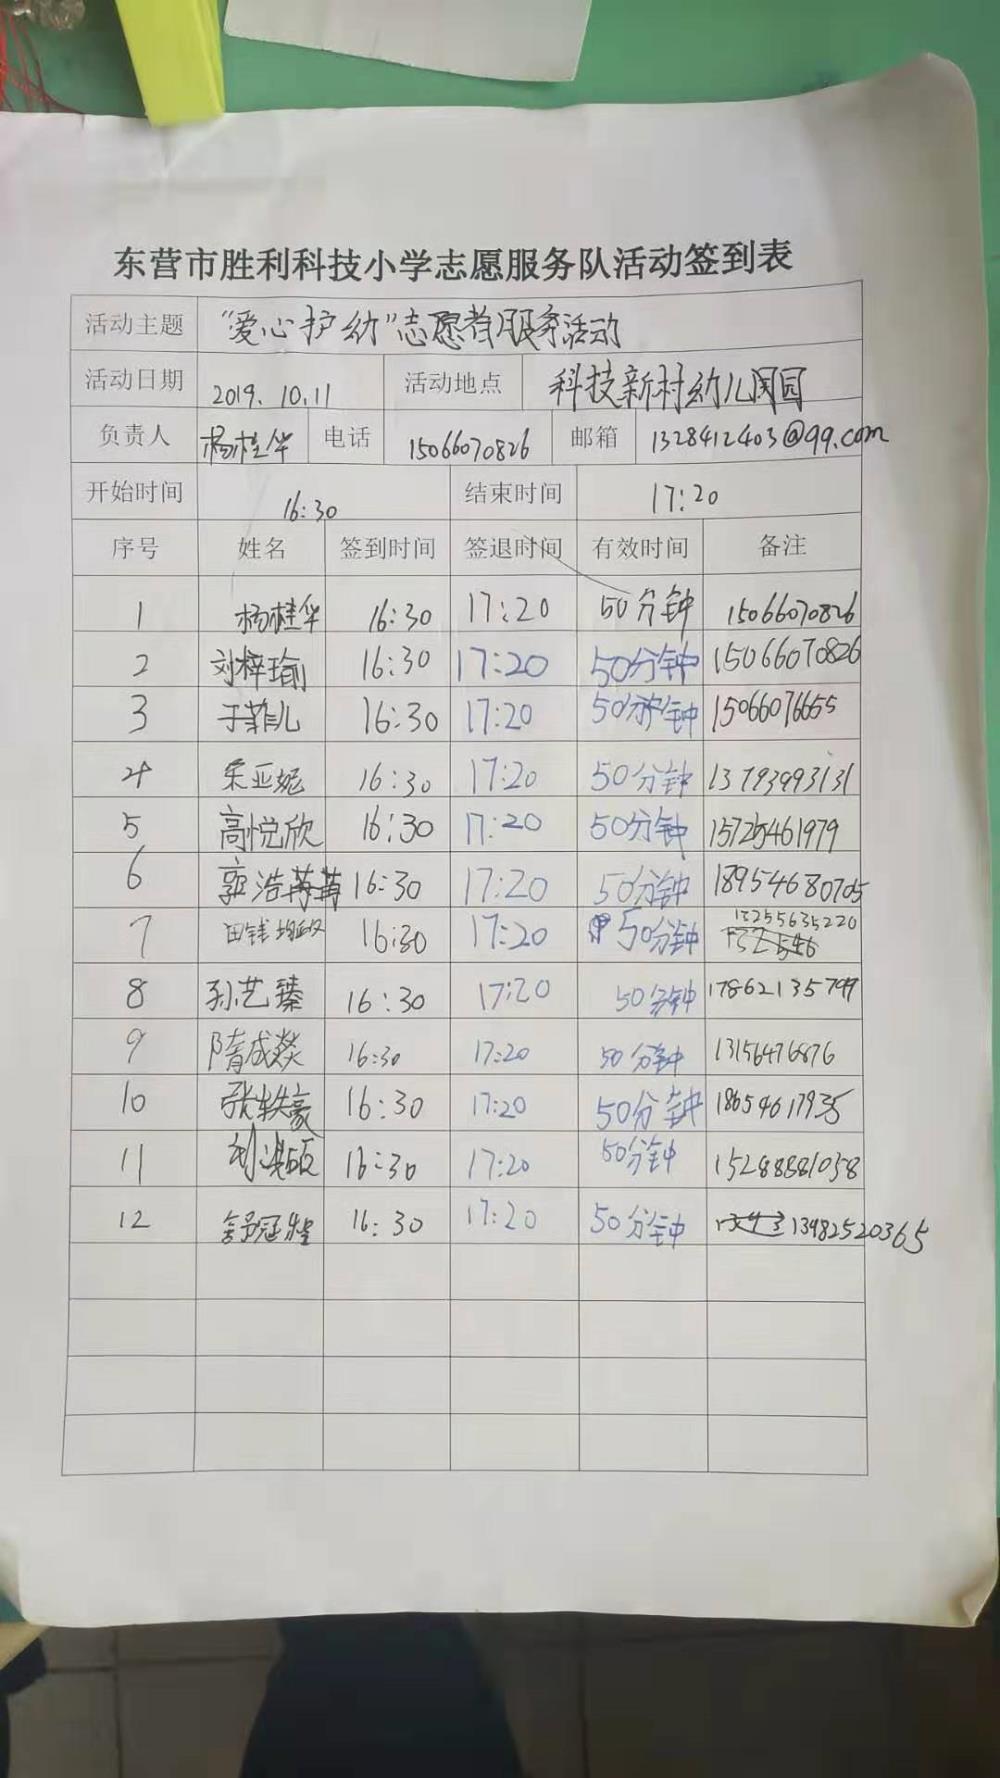 东营市胜利科技小学志愿服务队活动签到表
活动主题 “爱心护幼”志愿者服务活动
活动日期 2019.10.11 活动地点 科技新村幼儿园
负责人 杨桂华 电话 15066070826 邮箱 1328412403@qq.com
开始时间 16:30 结束时间 17:20
序号 姓名 签到时间 签退时间 有效时间 备注
1 杨桂华 16:30 17:20 50分钟 15066070826
2 刘梓瑜 16:30 17:20 50分钟 15066070826
3 于菲儿 16:30 17:20 50分钟 15066076655
4 宋亚妮 16:30 17:20 50分钟 13793993131
5 高悦欣 16:30 17:20 50分钟 15725461979
6 郭浩苒 16:30 17:20 50分钟 18954680705
7 16:30 17:20 50分钟
8 孙艺臻 16:30 17:20 50分钟 17862135799
9 隋成燚 16:30 17:20 50分钟 13156476876
10 张轶豪 16:30 17:20 50分钟 18654617935
11 16:30 17:20 50分钟 15288881058
12 16:30 17:20 50分钟 13982520365